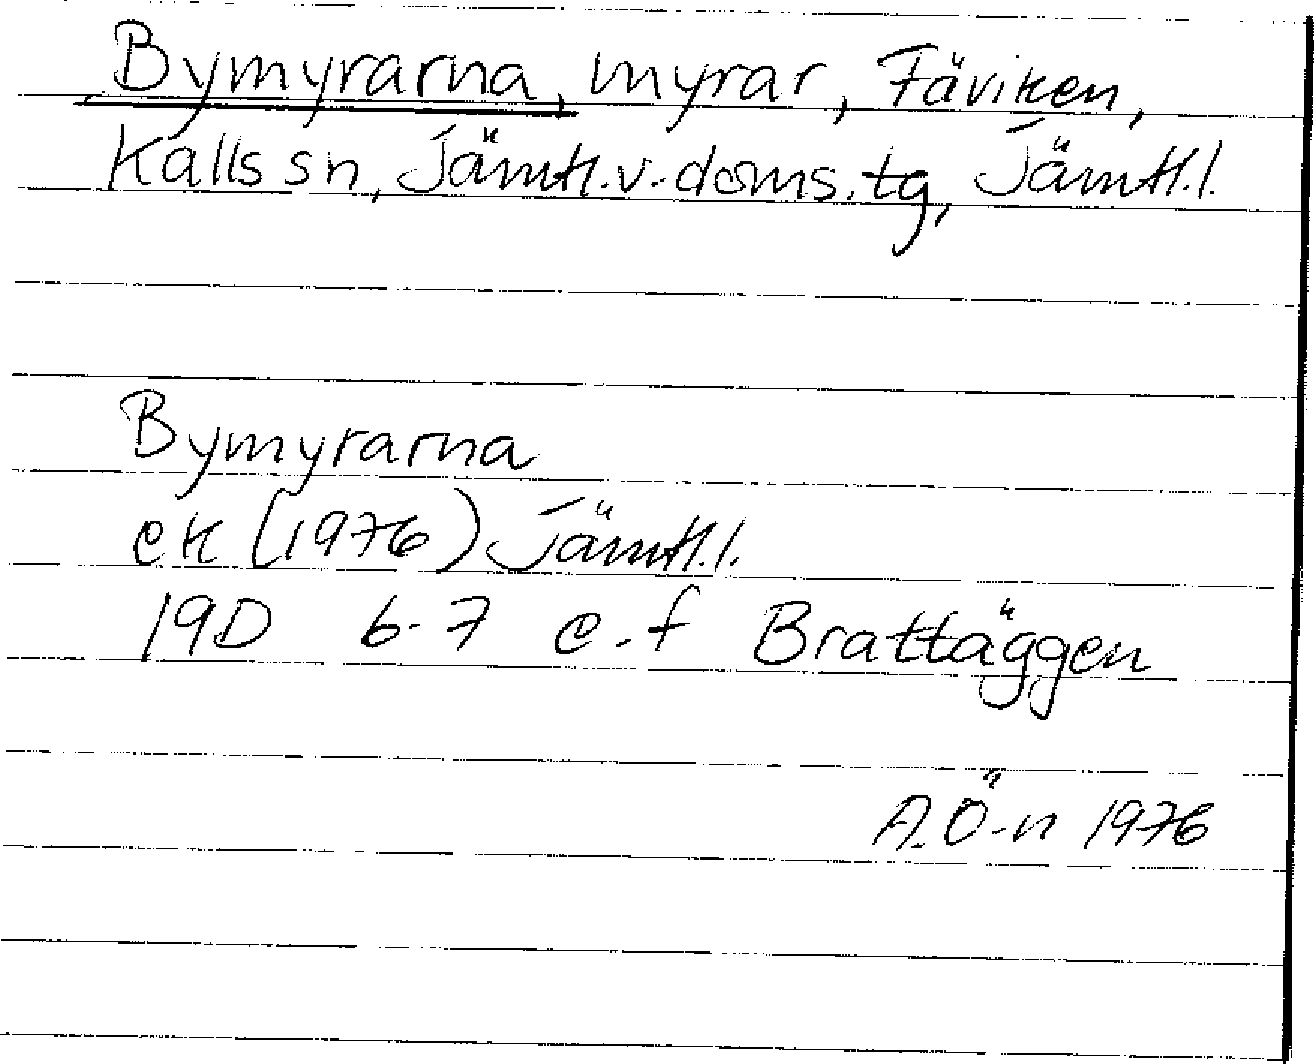 Bymyrarna, myrar, Fäviken,
Kalls sn, Jämtl.v.doms.tg, Jämtl.l.
Bymyrarna
ek (1976) Jämtl.l.
19D 6-7 e-f Brattäggen
A.Ö-n 1976